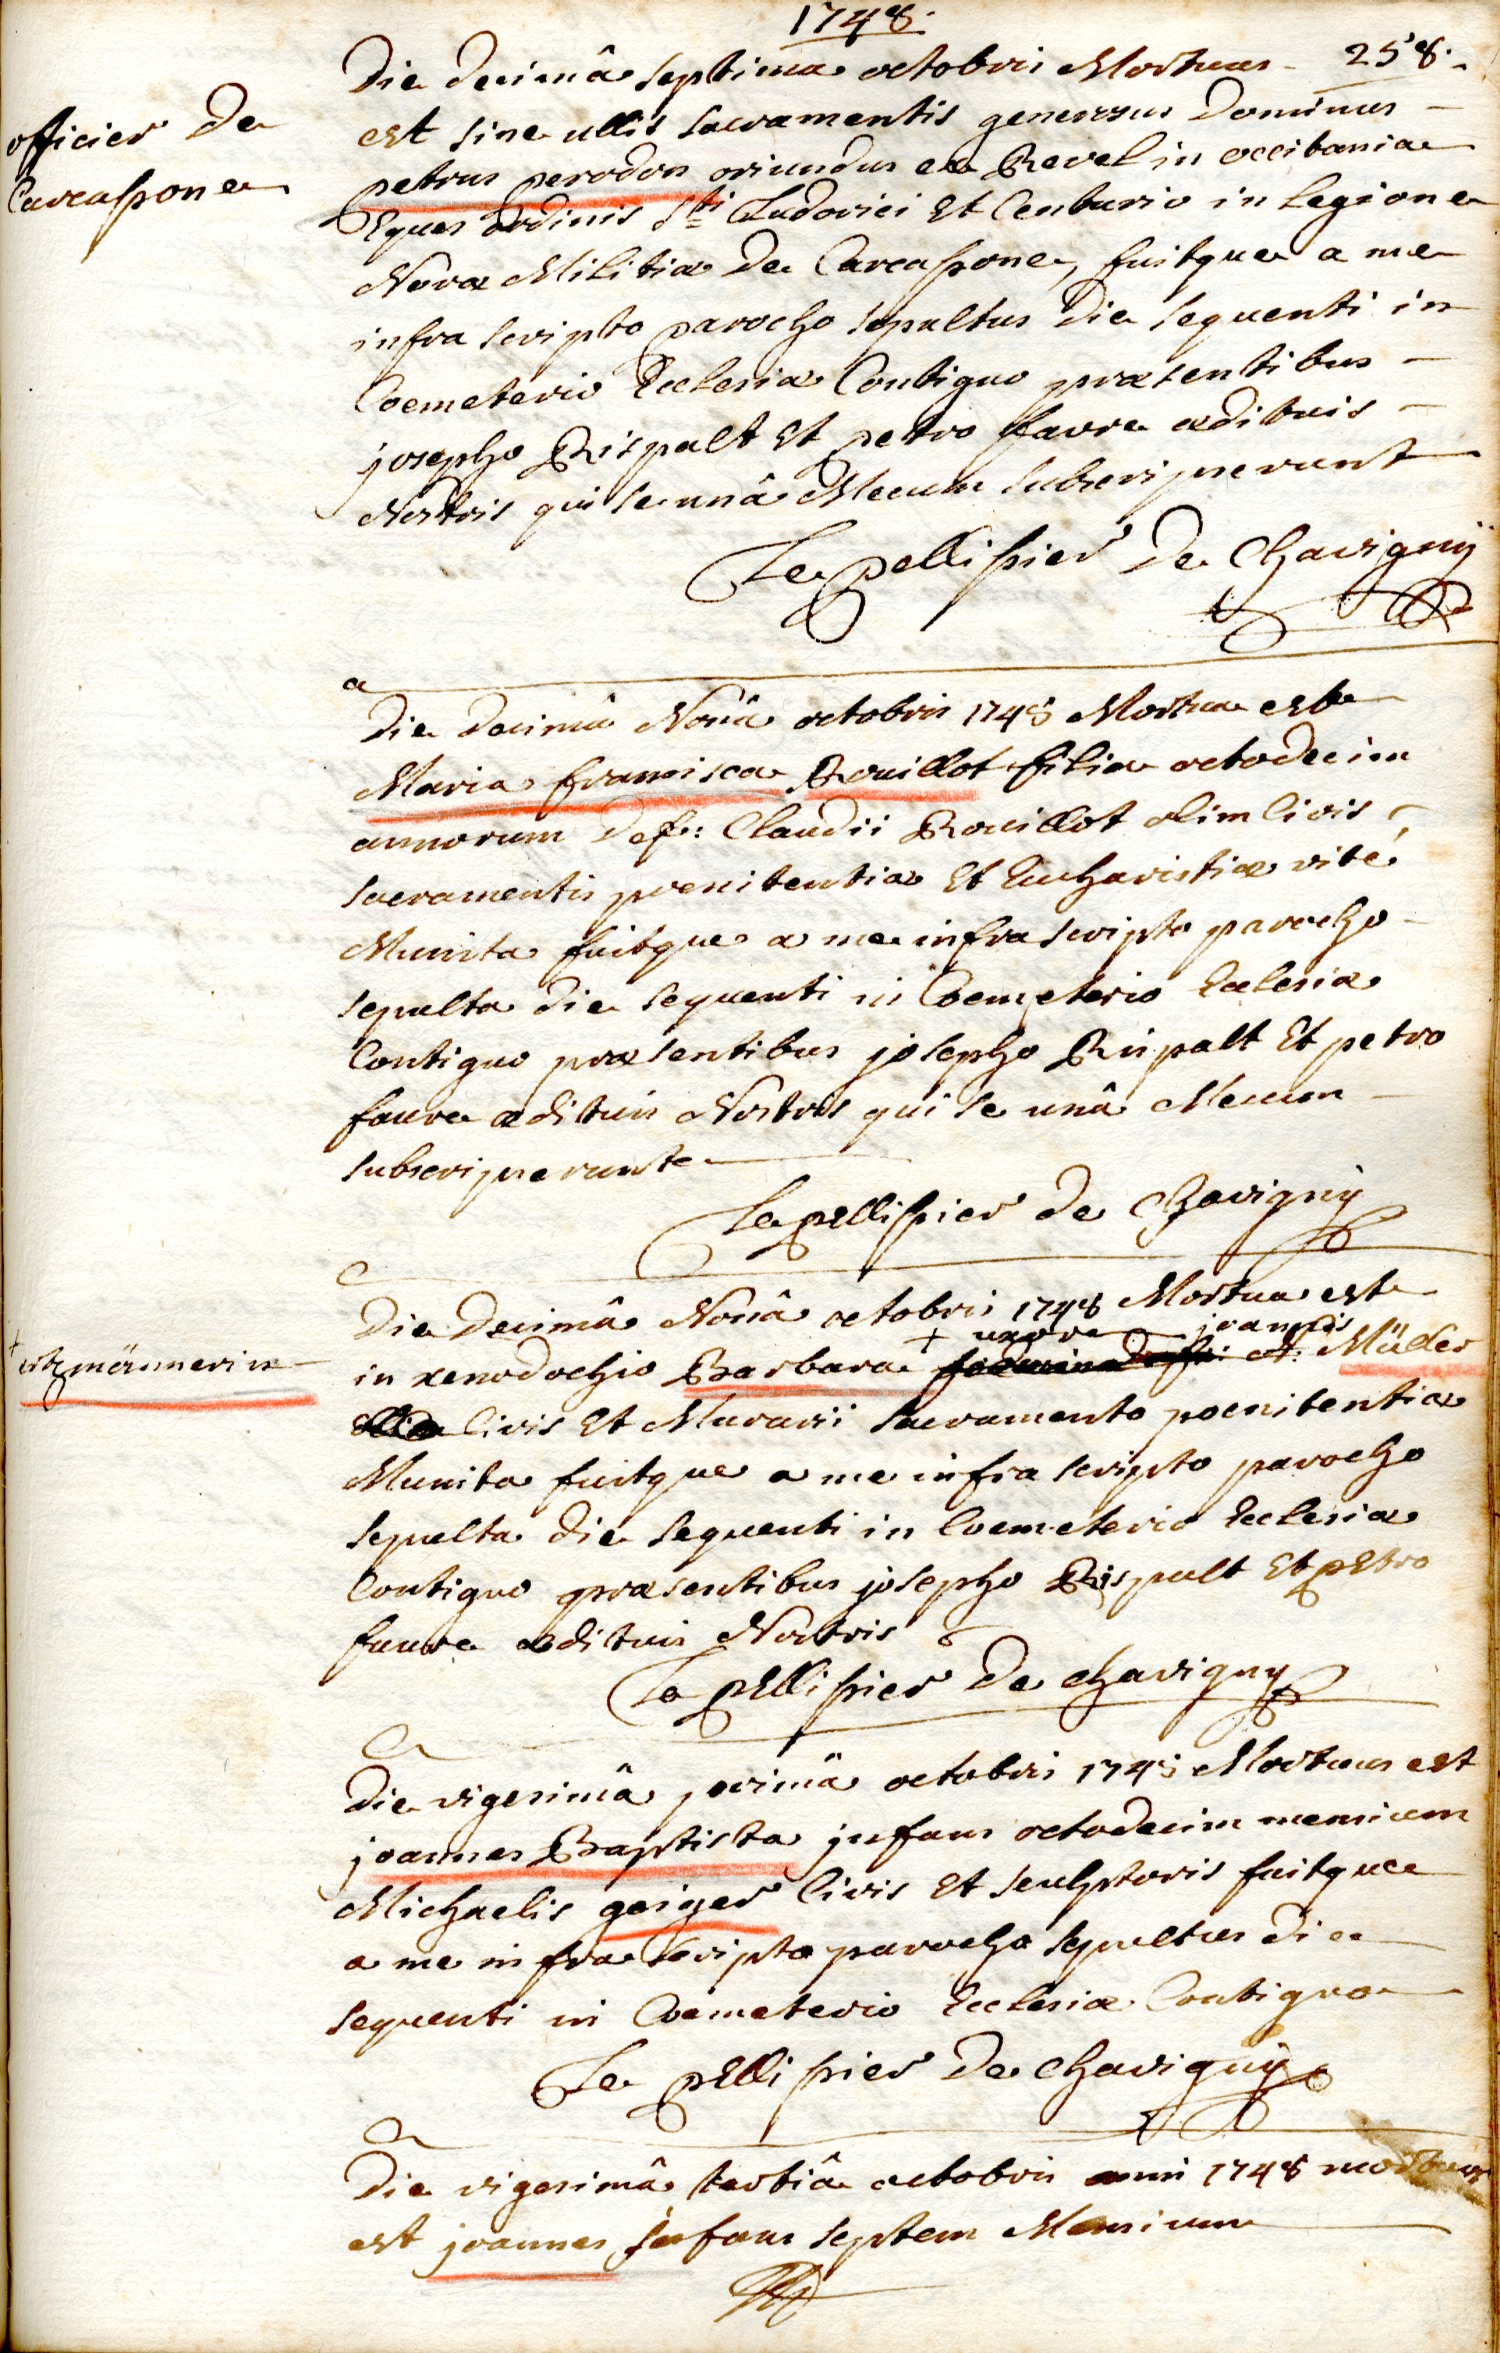 1748.
258.
officier de
Carcassone
Die decimâ septima octobris Mortuus
est sine ullis sacramentis generosus Dominus
petrus perodon oriundus ex Revel in occitania
Eques ordinis Sti Ludovici Et Centurio in legione
Nova Militiæ de Carcassone, fuitque a me
infra scripto parocho sepultus die sequenti in
Coemeterio Ecclesiæ Contiguo præsentibus
josepho Rispalt Et petro faure ædituis
Nostris qui se unâ Mecum subscripserunt
Le pellissier de Chavignÿ
Die decimâ Nonâ octobris 1748 Mortua est
Maria francisca Rouillot filia octodecim
annorum def: Claudii Rouillot olim Civis
sacramentis poenitentiæ Et Eucharistiæ rité
Munita fuitque a me infra scripto parocho
sepulta die sequenti in Coemeterio Ecclesiæ
Contiguo præsentibus josepho Rispalt Et petro
faure ædituis Nostris qui se unâ Mecum
subscripserunt
Le pellissier de Chavignÿ
Die decimâ Nonâ octobris 1748 Mortua est
+ uxor joannis
in xenodochio Barbara Müder
Civis Et Murarii sacramento poenitentiæ
Munita fuitque a me infra scripto parocho
sepulta die sequenti in Coemeterio Ecclesiæ
Contiguo præsentibus josepho Rispalt Et pEtro
faure ædituis Nostris
Le pEllissier de chavigny
Die vigesimâ primâ octobris 1748 Mortuus est
joannes Baptista jnfans octodecim mensium
Michaelis geiger Civis Et sculptoris fuitque
a me infra scripto parocho sepultus die
sequenti in Coemeterio Ecclesiæ Contiguo
Le pEllissier de chavignÿ
Die vigesimâ tertiâ octobris anni 1748 mortuus
est joannes jnfans septem Mensium